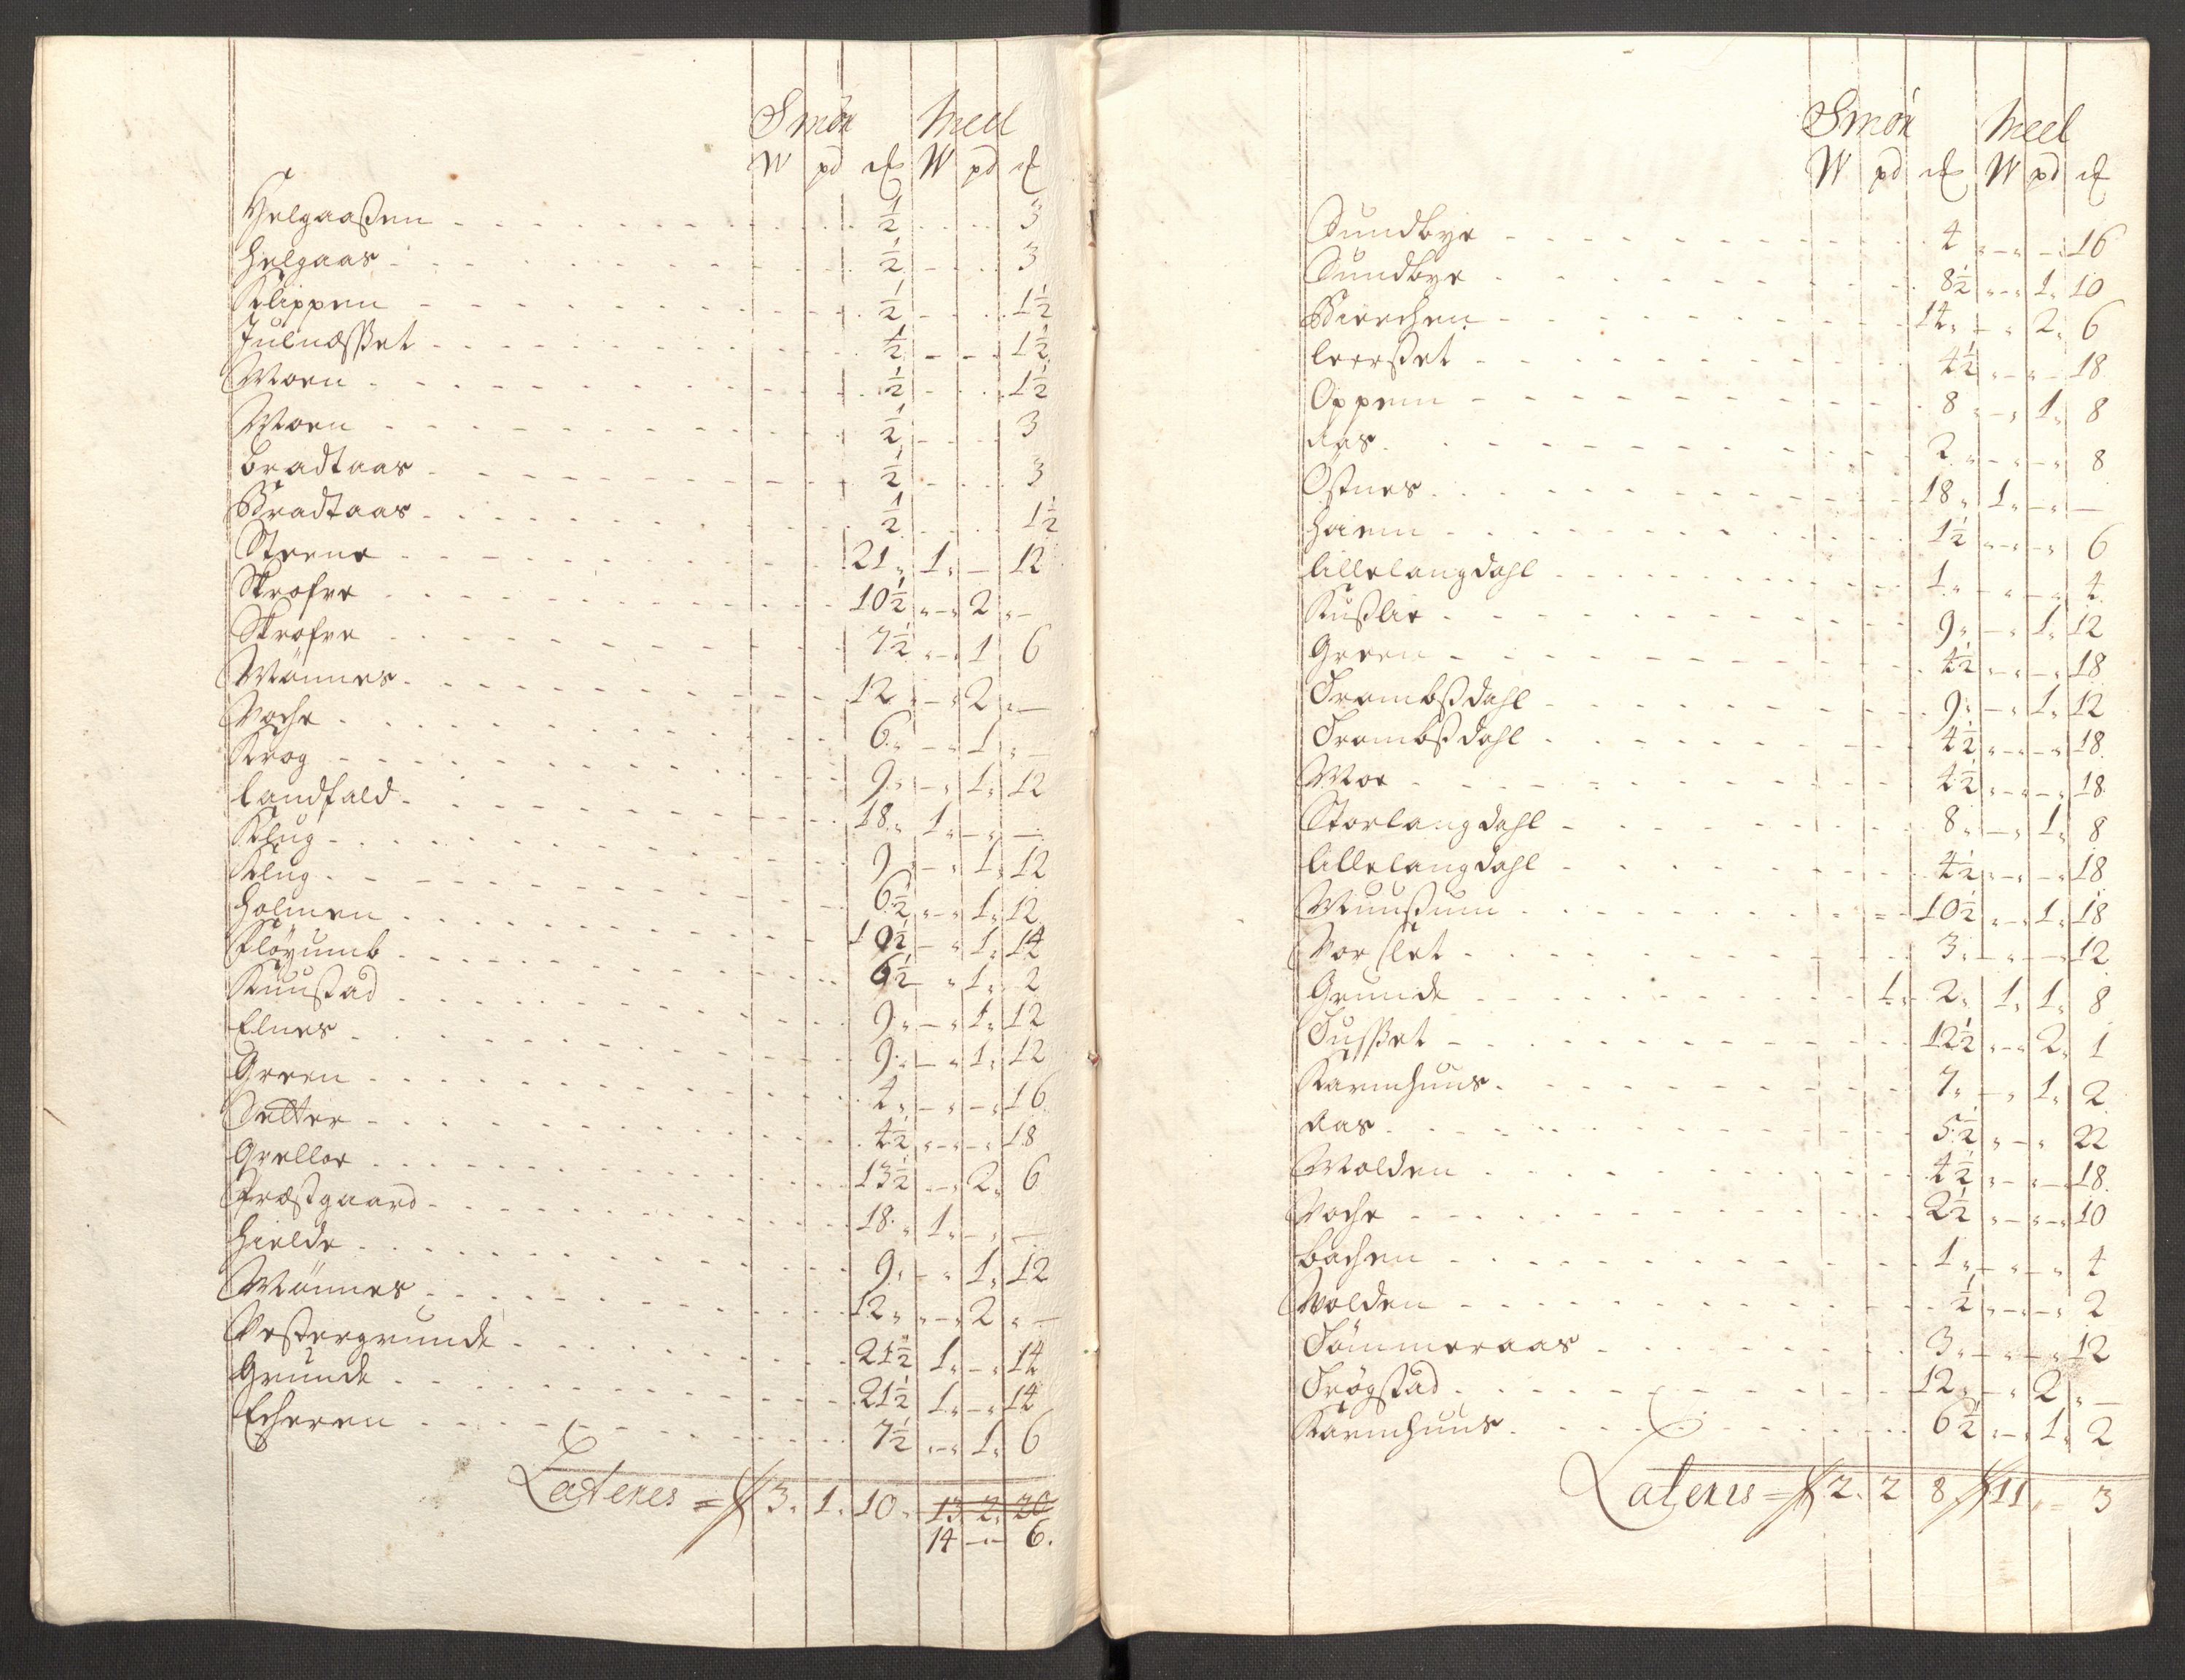 Smör Meel
W pd ℔ W pd ℔
Helgaaßen ½ 3
Helgaas ½ 3
Klippen ½ 1½
Julnæsset ½ 1½
Moen ½ 1½
Moen ½ 3
Bradtaas ½ 3
Bradtaas ½ 1½
Steene 21 1 — 12
Skrofve 10½ — 2 —
Skrofve 7½ — 1 6
Mönnes 12 — 2 —
Moche 6 — 1 —
Krog 9 — 1 12
Landfald 18 1 — —
Klug 9 — 1 12
Klug 6½ — 1 12
Holmen 10½ — 1 14
Fløyumb 6½ — 1 2
Kuustad 9 — 1 12
Elnes 9 — 1 12
Green 4 — — 16
Setter 4½ — — 18
Grelloe 13½ — 2 6
Præstgaard 18 1 — —
Hielde 9 — 1 12
Mönnes 12 — 2 —
Vestergrunde 21½ 1 — 14
Grunde 21½ 1 — 14
Echeren 7½ — 1 6
Lateris = 3 1 10 13 2 20
14 — 6
Smör Meel
W pd ℔ W pd ℔
Sundbye 4 — — 16
Sundbye 8½ — 1 10
Bierchen 14 — 2 6
Leerset 4½ — — 18
Oppem 8 — 1 8
Aas 2 — — 8
Östnes 18 1 — —
Haem 1½ — — 6
Lillelangdahl 1 — — 4
Kußlie 9 — 1 12
Green 4½ — — 18
Trombßdahl 9 — 1 12
Trombßdahl 4½ — — 18
Moe 4½ — — 18
Storlangdahl 8 — 1 8
Lillelangdahl 4½ — — 18
Muußum 10½ — 1 18
Vorslet 3 — — 12
Grunde 1 2 1 1 8
Tusset 12½ — 2 1
Karmhuus 7 — 1 2
Aas 5½ — — 22
Molden 4½ — — 18
Moche 2½ — — 10
Bachen 1 — — 4
Volden ½ — — 2
Tömmeraas 3 — — 12
Trögstad 12 — 2 —
Karmhuus 6½ — 1 2
Lateris = 2 2 8 11 — 3